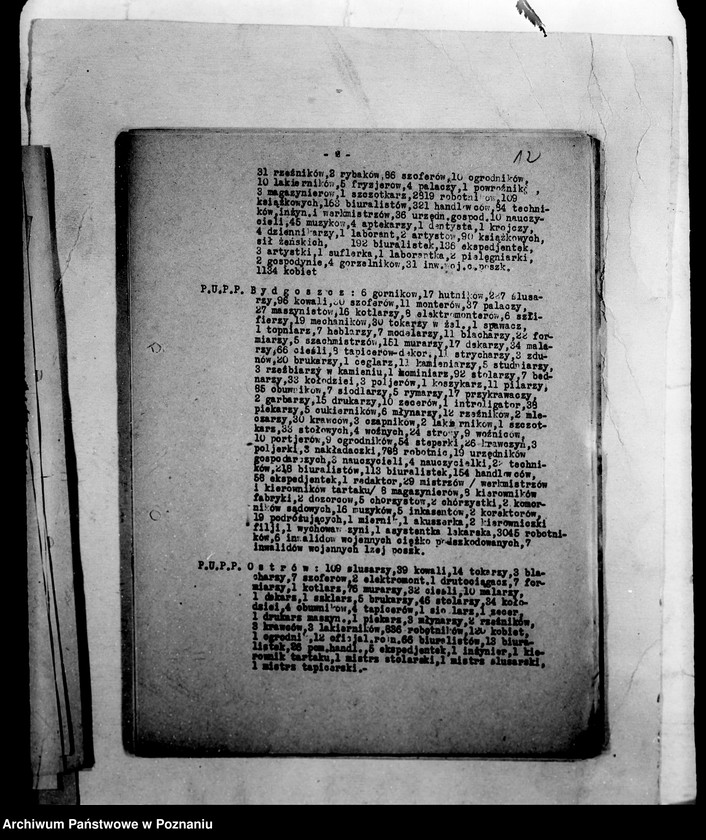 - 8 -
12
31 rzeźników,2 rybaków,86 szoferów,10 ogrodników,
10 lakierników,5 fryzjerow,4 palaczy,1 powroźnik,
3 magazynierow,1 szczotkarz,2819 robotnikow,109
książkowych,153 biuralistów,321 handlowców,84 techni-
ków,inżyn.i werkmistrzów,36 urzędn.gospod.10 nauczy-
cieli,45 muzyków,4 aptekarzy,1 dentysta,1 krojczy,
4 dziennikarzy,1 laborant,2 artystow,90 książkowych,
sił żeńskich, 192 biuralistek,136 ekspedjentek,
3 artystki,1 suflerka,1 laborantka,2 pielęgniarki,
2 gospodynie,4 gorzelników,31 inw.woj.c.poszk.
1134 kobiet
P.U.P.P. B y d g o s z c z : 6 górnikow,17 hutników, ślusa-
rzy,96 kowali, szoferów,11 monterów,37 palaczy,
27 maszynistów,16 kotlarzy,8 elektromonterów,6 szli-
fierzy,19 mechaników,30 tokarzy w żel.,1 spawacz,
1 topniarz,7 heblarzy,7 modelarzy,11 blacharzy,22 for-
miarzy,5 szachmistrzów,151 murarzy,17 dekarzy,34 mala-
rzy,66 cieśli,8 tapicerów-dekor.,11 strycharzy,3 zdu-
nów,20 brukarzy,1 ceglarz,11 kamieniarzy,5 studniarzy,
3 rzeźbiarzy w kamieniu,1 kominiarz,92 stolarzy,7 bed-
narzy,33 kołodziei,3 poljerów,1 koszykarz,11 pilarzy,
85 obuwników,7 siodlarzy,5 rymarzy,17 przykrawaczy,
2 garbarzy,15 drukarzy,10 zecerów,1 introligator,39
piekarzy,5 cukierników,6 młynarzy,12 rzeźników,2 mle-
czarzy,30 krawców,3 czapników,2 lakierników,1 szczot-
karz,33 stołowych,4 woźnych,24 stroży,9 woźniców,
10 portjerów,9 ogrodników,54 steperki,26 krawczyń,3
poljerki,3 nakładaczki,766 robotnic,19 urzędników
gospodarczych,3 nauczycieli,4 nauczycielki, techni-
ków,218 biuralistów,113 biuralistek,154 handlowców,
58 ekspedjentek,1 redaktor,29 mistrzów / werkmistrzów
i kierowników tartaku/ 8 magazynierów,8 kierowników
fabryki,2 dozorcow,5 chórzystow,2 chórzystki,2 komor-
ników sądowych,16 muzyków,5 inkasentów,2 korektorów,
19 podróżujących,1 miernik,1 akuszerka,2 kierowniczki
filji,1 wychowawczyni,1 asystentka lekarska,3045 robotni-
ków,6 inwalidow wojennych ciężko poszkodowanych,7
inwalidów wojennych lzej poszk.
P.U.P.P. O s t r ó w : 109 ślusarzy,39 kowali,14 tokarzy,3 bla-
charzy,7 szoferów,2 elektromont.1 drutociągacz,7 for-
miarzy,1 kotlarz,76 murarzy,32 cieśli,10 malarzy,
1 dekarz,1 szklarz,5 brukarzy,46 stolarzy,34 koło-
dziei,4 obuwników,4 tapicerów,1 siodlarz,1 zecer,
1 drukarz maszyn.,1 piekarz,3 młynarzy,2 rzeźników,
3 krawców,3 lakierników,836 robotników,120 kobiet,
1 ogrodnik,12 oficjal.roln.66 biuralistów,13 biura-
listek,26 pom.handl.,5 ekspedjentek,1 inżynier,1 kie-
rownik tartaku,1 mistrz stolarski,1 mistrz ślusarski,
1 mistrz tapicerski.-
Archiwum Państwowe w Poznaniu